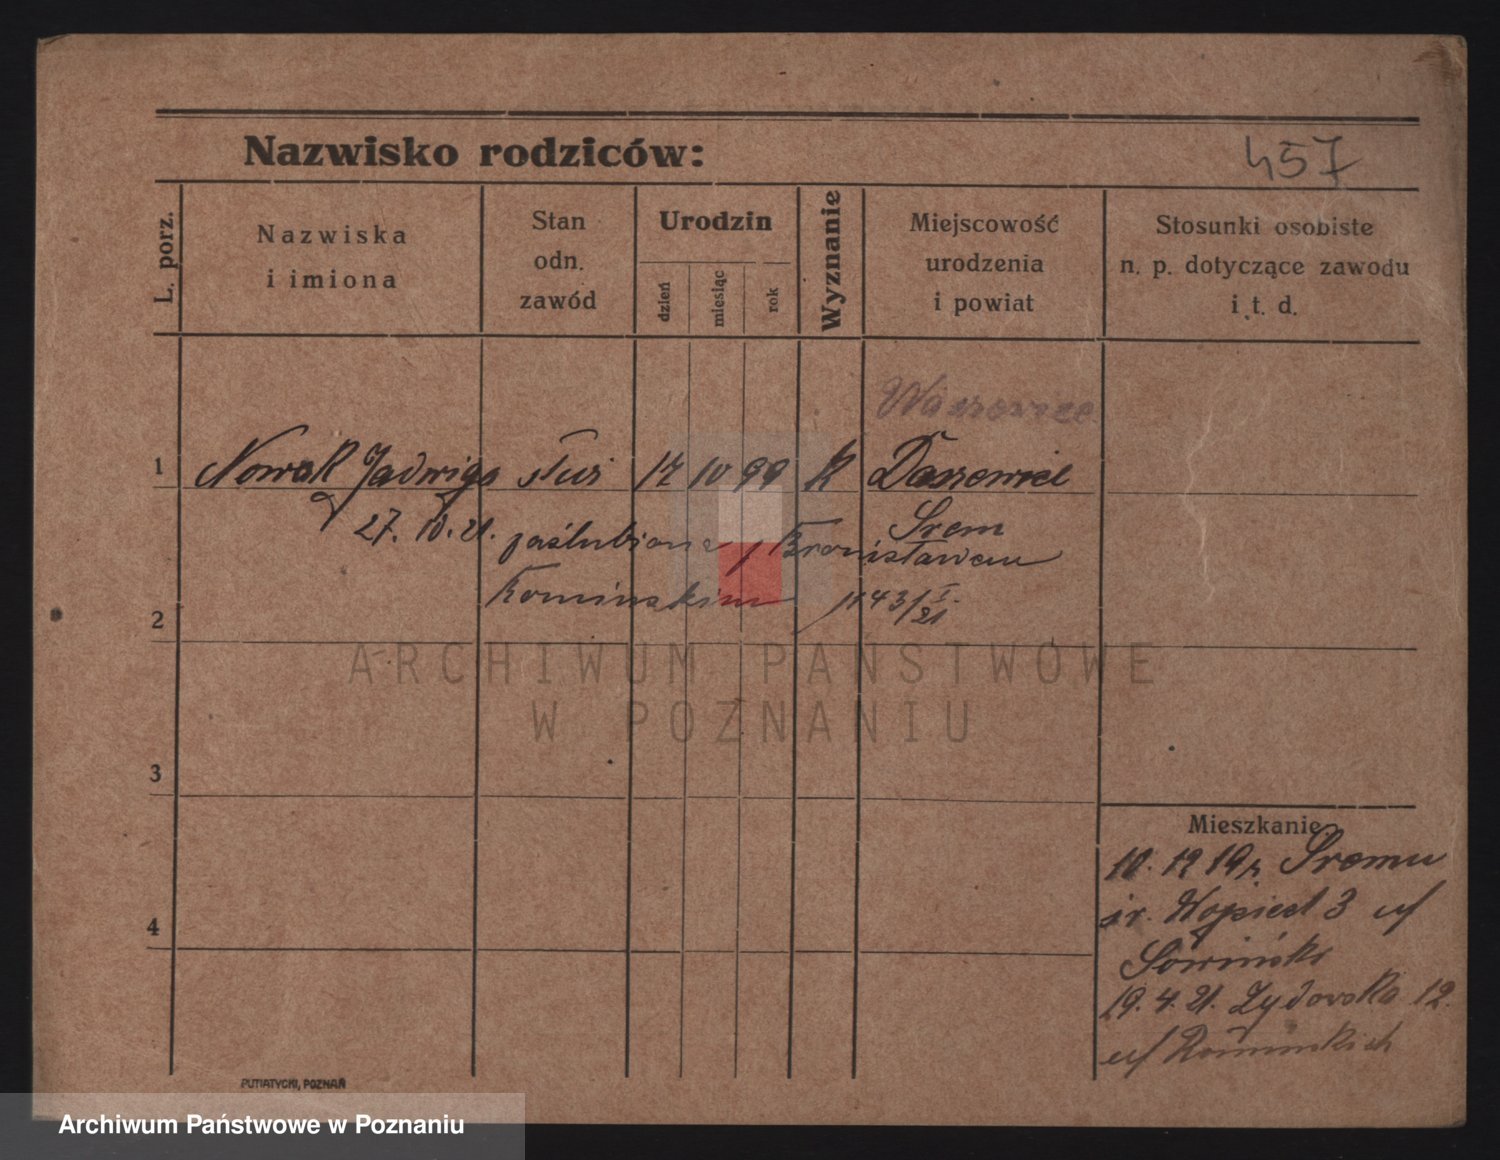 Nazwisko rodziców:
457
L. porz.
Nazwiska
i imiona
Stan
odn.
zawód
Urodzin
dzień
miesiąc
rok
Wyznanie
Miejscowość
urodzenia
i powiat
Stosunki osobiste
n. p. dotyczące zawodu
i t. d.
1 Nowak Jadwiga służ 17 10 99 K Daszewice
Śrem
27. 10. 21. zaślubiona z Bronisławem
Komińskim 1143/
2
ARCHIWUM PAŃSTWOWE
W POZNANIU
3
Mieszkanie
10. 12 19 r. Śremu
św. Wojciech 3 u/
4
Sowiński
19. 4. 21. Żydowska 12.
u/
PUTIATYCKI, POZNAŃ
Archiwum Państwowe w Poznaniu